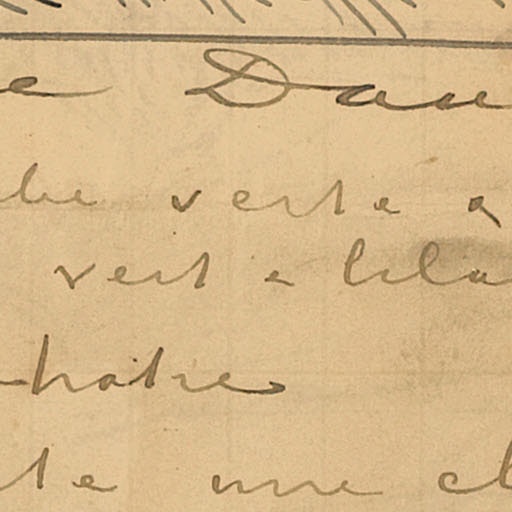 e Dan
be verte a
vert e bla
hatre
te une cl